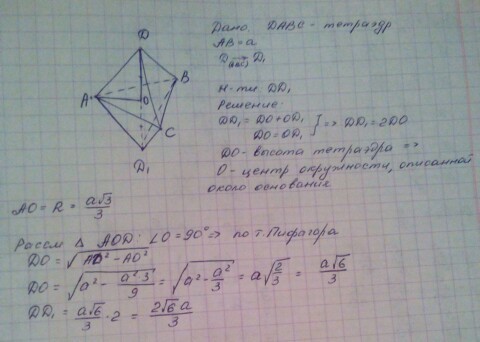 Дано: DABC - тетраэдр
AB = a
D →(ABC) D₁
Н-ти: DD₁
Решение:
DD₁ = DO + OD₁
DO = OD₁ } => DD₁ = 2DO
DO - высота тетраэдра =>
O - центр окружности, описанной
около основания
D
A
B
O
C
D₁
AO = R = a√3/3
Рассм △ AOD: ∠O = 90° => по т. Пифагора
DO = √(AD² - AO²)
DO = √(a² - a²3/9) = √(a² - a²/3) = a√(2/3) = a√6/3
DD₁ = a√6/3 · 2 = 2√6a/3